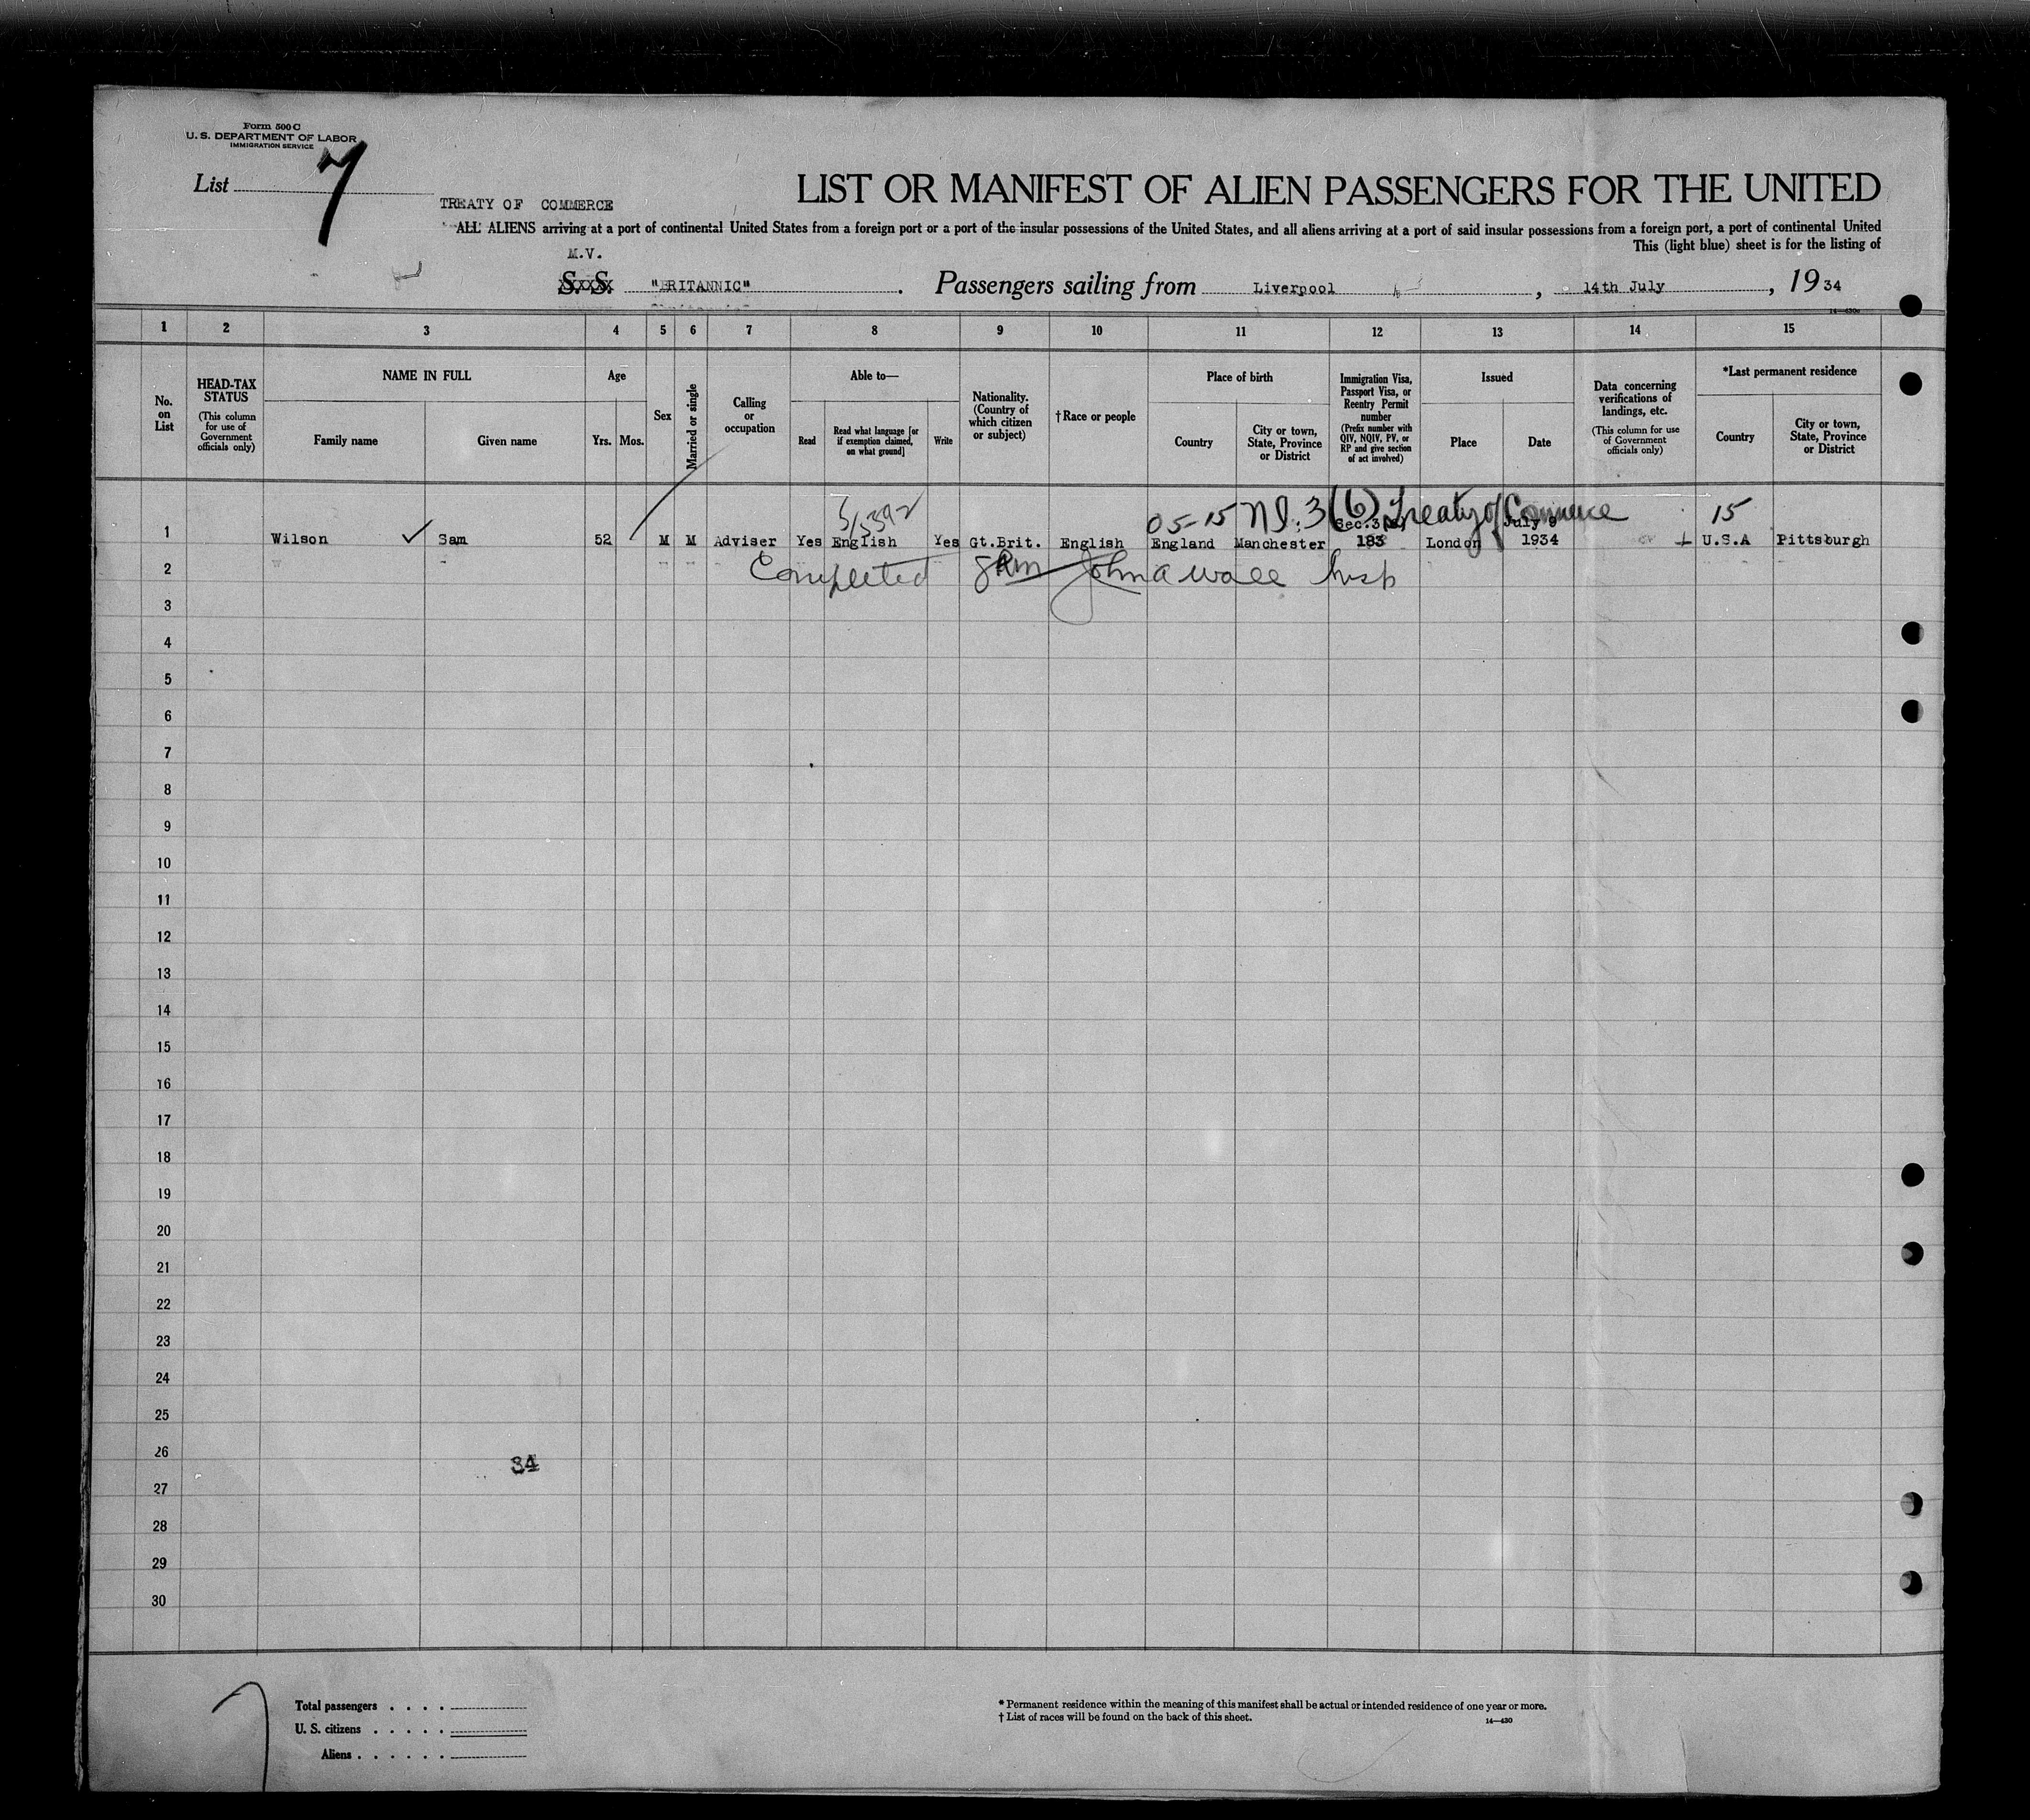 Form 500 C
U. S. DEPARTMENT OF LABOR
IMMIGRATION SERVICE
List 7
TREATY OF COMMERCE
LIST OR MANIFEST OF ALIEN PASSENGERS FOR THE UNITED
ALL ALIENS arriving at a port of continental United States from a foreign port or a port of the insular possessions of the United States, and all aliens arriving at a port of said insular possessions from a foreign port, a port of continental United
This (light blue) sheet is for the listing of
M.V.
S. S. "BRITANNIC" . Passengers sailing from Liverpool , 14th July , 19 34
1 2 3 4 5 6 7 8 9 10 11 12 13 14 15
No. on List
HEAD-TAX STATUS (This column for use of Government officials only)
NAME IN FULL
Family name Given name
Age
Yrs. Mos.
Sex
Married or single
Calling or occupation
Able to—
Read
Read what language [or if exemption claimed, on what ground]
Write
Nationality. (Country of which citizen or subject)
† Race or people
Place of birth
Country
City or town, State, Province or District
Immigration Visa, Passport Visa, or Reentry Permit number (Prefix number with QIV, NQIV, PV, or RP and give section of act involved)
Issued
Place Date
Data concerning verifications of landings, etc. (This column for use of Government officials only)
*Last permanent residence
Country
City or town, State, Province or District
05-15 3 (6) Treaty of Commerce 15
July 9
1 Wilson Sam 52 M M Adviser Yes English Yes Gt.Brit. English England Manchester 183 London 1934 U.S.A Pittsburgh
2 Completed John A Wall Insp
3
4
5
6
7
8
9
10
11
12
13
14
15
16
17
18
19
20
21
22
23
24
25
26
34
27
28
29
30
Total passengers . . . .
U. S. citizens . . . . .
Aliens . . . . . .
* Permanent residence within the meaning of this manifest shall be actual or intended residence of one year or more.
† List of races will be found on the back of this sheet.
14—430